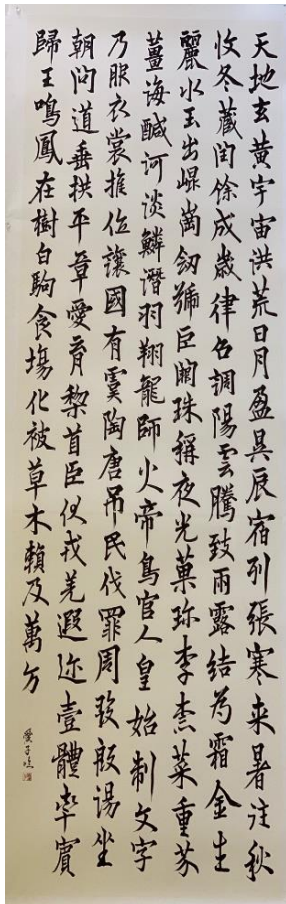 天地玄黄宇宙洪荒日月盈昃辰宿列張寒来暑往秋
收冬藏閏餘成歲律召調陽雲騰致雨露結為霜金生
麗水玉出崐崗劒號巨闕珠稱夜光菓珍李柰菜重芥
薑海醎河淡鱗潛羽翔龍師火帝鳥官人皇始制文字
乃服衣裳推位讓國有虞陶唐吊民伐罪周發殷湯坐
朝問道垂拱平章愛育黎首臣伏戎羌遐迩壹體率賓
歸王鳴鳳在樹白駒食場化被草木賴及萬方